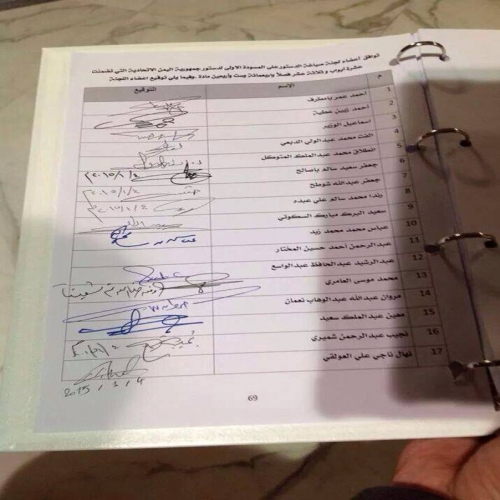 توافق أعضاء لجنة صياغة الدستور على المسودة الأولى لدستور جمهورية اليمن الاتحادية التي تضمنت
عشرة أبواب وثلاثة عشر فصلاً وأربعمائة وست وأربعين مادة. وفيما يلي توقيع أعضاء اللجنة
م الاسم التوقيع
1 أحمد عمر بامطرف
2 أحمد زيني عطية
3 إسماعيل الوزير
4 الفت محمد عبدالولي الدبعي
5 انطلاق محمد عبدالملك المتوكل
6 جعفر سعيد سالم باصالح ٢٠١٥/١/٤
7 جعفر عبدالله شوطح
8 رندا محمد سالم علي عبده
9 سعيد البرك مبارك السكوتي
10 عباس محمد محمد زيد
11 عبدالرحمن أحمد حسين المختار
12 عبدالرشيد عبدالحافظ عبدالواسع
13 محمد موسى العامري
14 مروان عبدالله عبدالوهاب نعمان
15 معين عبدالملك سعيد
16 نجيب عبدالرحمن شميري
17 نهال ناجي علي العولقي 2015/1/4
69